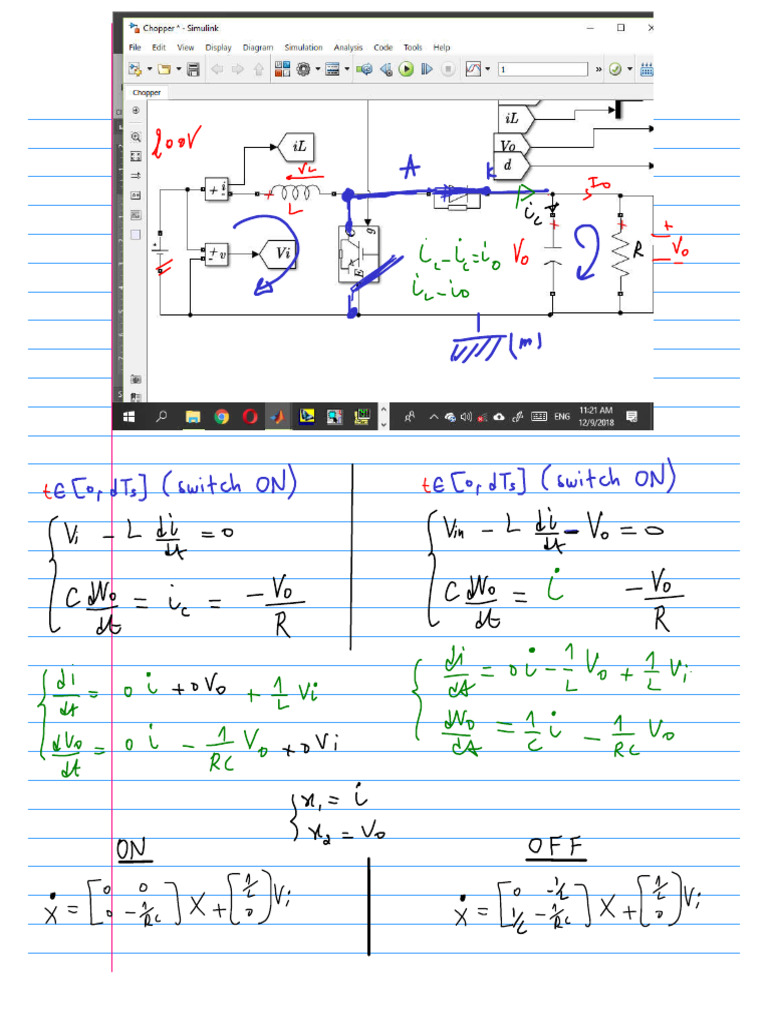 Chopper * - Simulink
File Edit View Display Diagram Simulation Analysis Code Tools Help
1
»
Chopper
200V
iL
+ i -
VL
+
L
A
K
iL
Vo
d
ic
Io
+ v -
Vi
C
g
E
iL - ic = io
iL - io
Vo
+
+
R
+
Vo
-
(m)
11:21 AM
ENG
12/9/2018
t∈[0, dTs] (switch ON)
Vi - L di/dt = 0
C dVo/dt = ic = -Vo/R
t∈[0, dTs] (switch ON)
Vin - L di/dt - Vo = 0
C dVo/dt = i -Vo/R
di/dt = 0 i + 0Vo + 1/L Vi
dVo/dt = 0 i - 1/RC Vo + 0Vi
di/dt = 0 i - 1/L Vo + 1/L Vi
dVo/dt = 1/C i - 1/RC Vo
x1 = i
x2 = Vo
ON
Ẋ = [0 0; 0 -1/RC] X + [1/L; 0] Vi
OFF
Ẋ = [0 -1/L; 1/C -1/RC] X + [1/L; 0] Vi